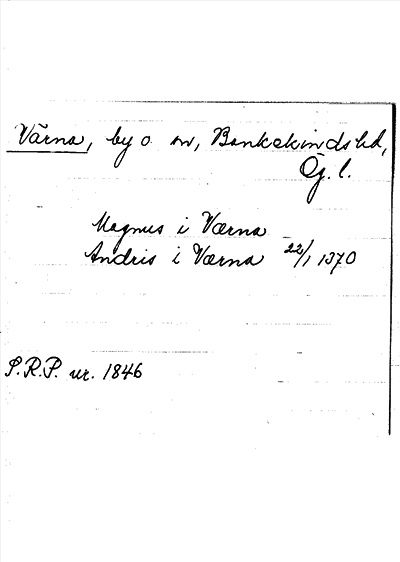 Värna, by o sn, Bankekinds hd,
Ög. l.
Magnus i Værna
Andris i Værna 22/1 1370
S.R.P. nr. 1846